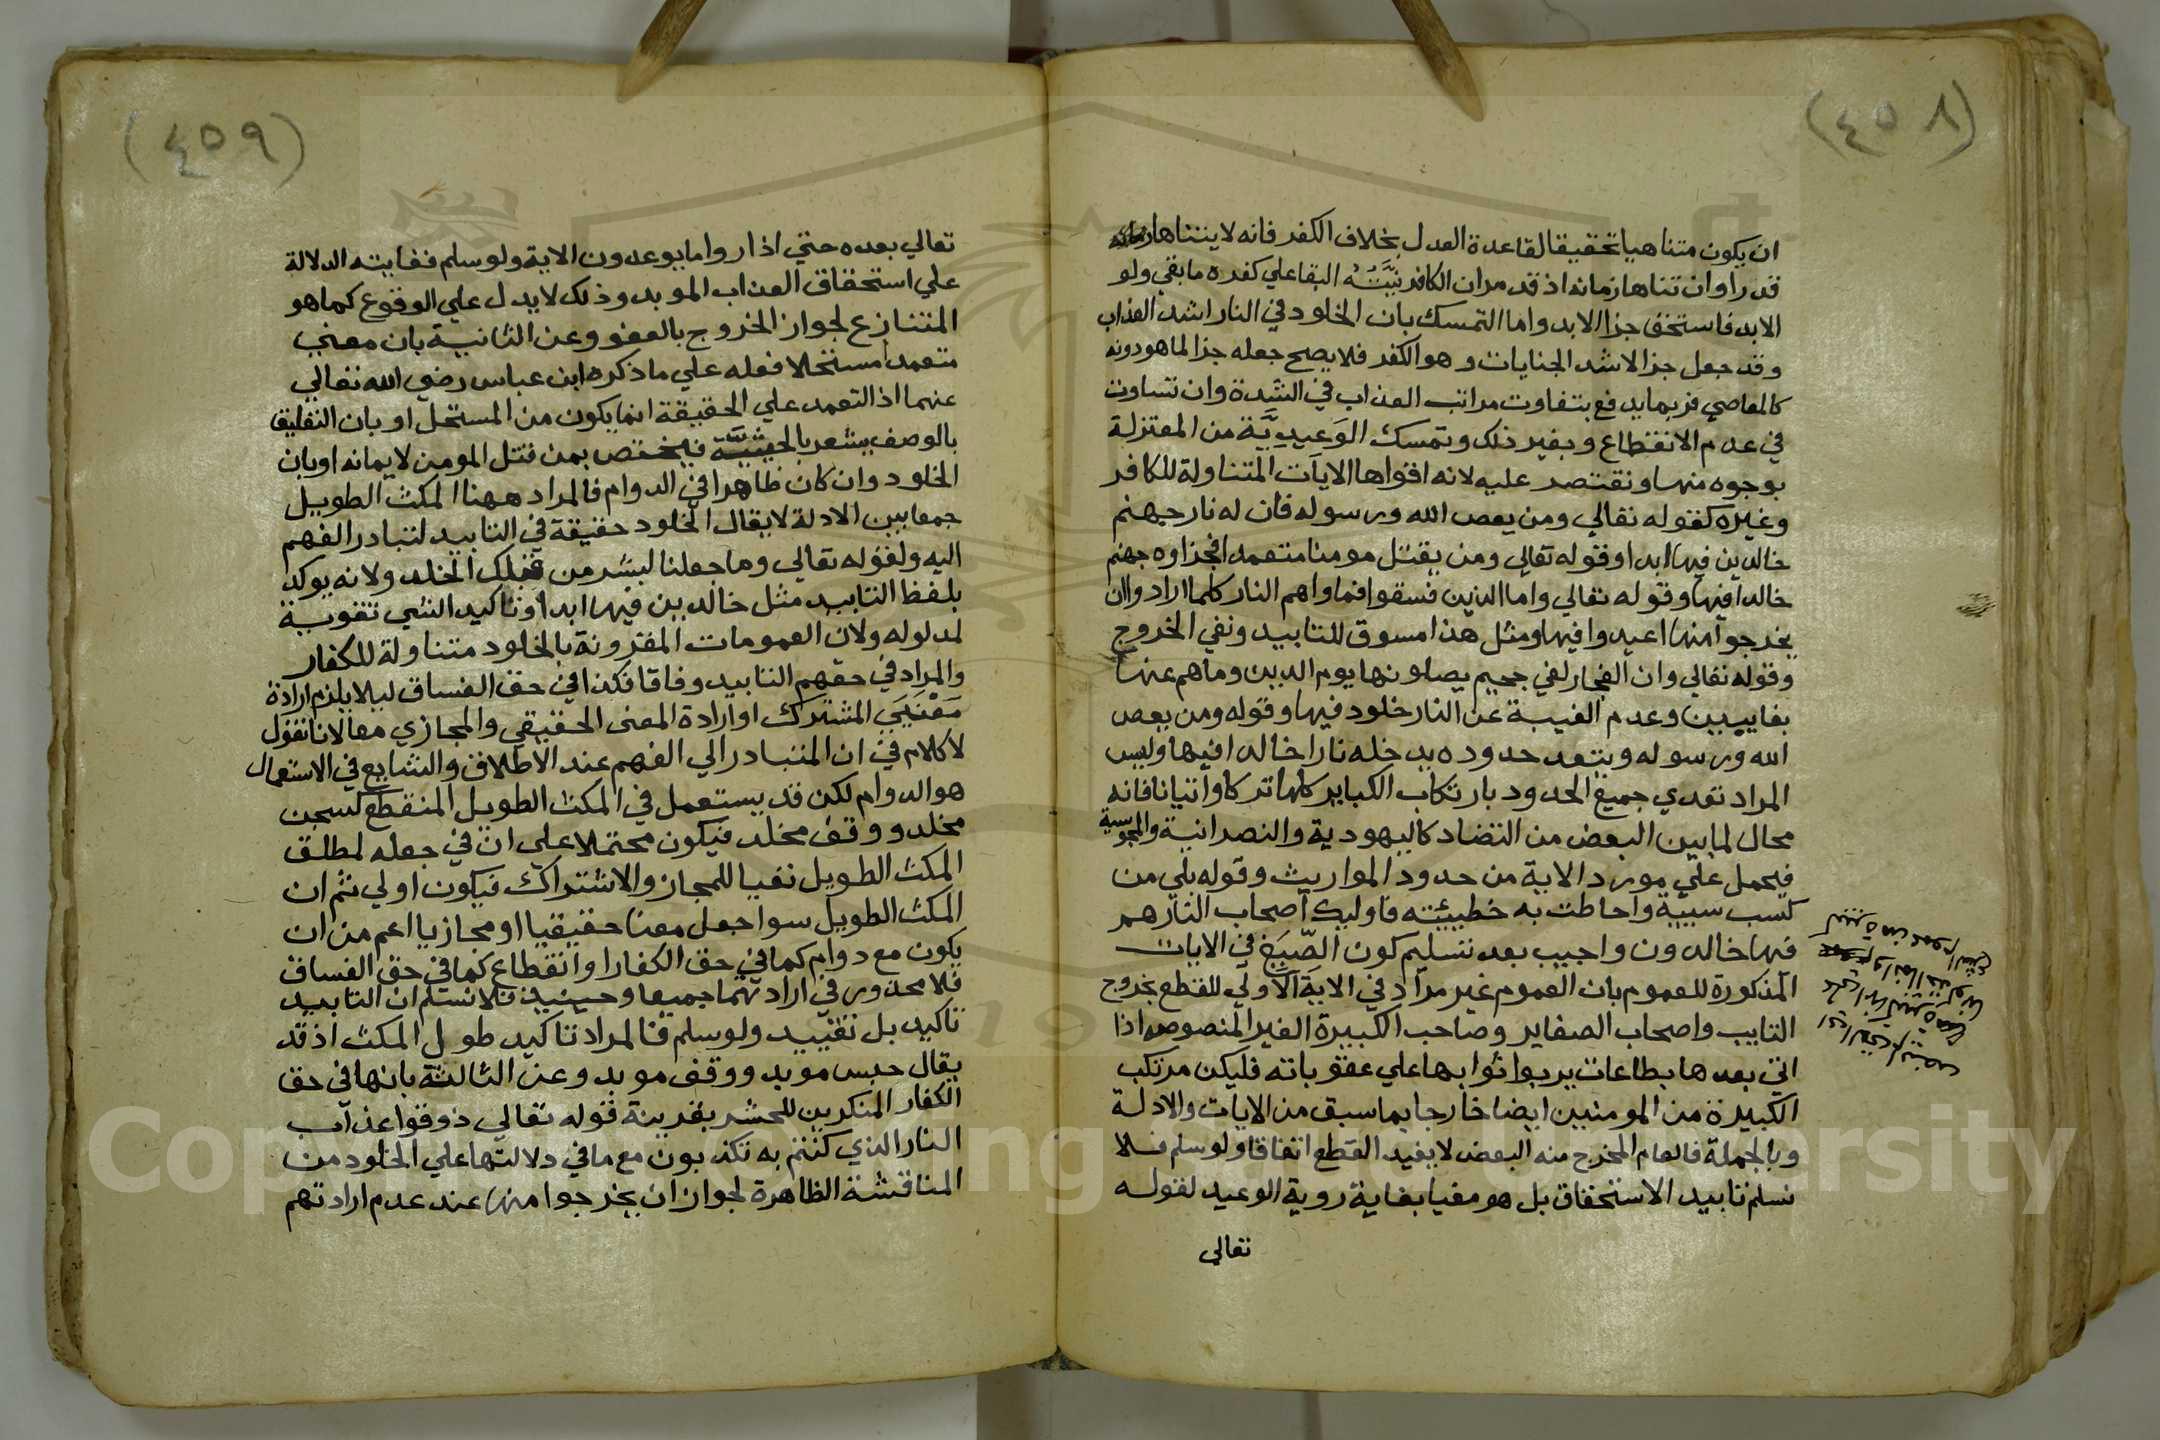 (٤٥٨)
ان يكون متناهيا تحقيقا لقاعدة العدل بخلاف الكفر فانه لا يتناها
قدرا وان تناها زمانه اذ قد مر ان الكافر نيَّتُه البقا علي كفره ما بقي ولو
الابد فاستحق جزا الابد واما التمسك بان الخلود في النار اشد العذاب
وقد جعل جزا لاشد الجنايات وهو الكفر فلا يصح جعله جزا لما هو دونه
كالمعاصي فربما يدفع بتفاوت مراتب العذاب في الشدة وان تساوت
في عدم الانقطاع وبغير ذلك وتمسك الوَعِيدِيَّة من المعتزلة
بوجوه منها ونقتصر عليه لانه اقواها الايات المتناولة للكافر
وغيره كقوله تعالي ومن يعص الله ورسوله فان له نار جهنم
خالدين فيها ابدا وقوله تعالي ومن يقتل مومنا متعمدا فجزاوه جهنم
خالدا فيها وقوله تعالي واما الذين فسقوا فماواهم النار كلما ارادوا ان
يخرجوا منها اعيدوا فيها ومثل هذا مسوق للتابيد ونفي الخروج
وقوله تعالي وان الفجار لفي جحيم يصلونها يوم الدين وما هم عنها
بغايبين وعدم الغيبة عن النار خلود فيها وقوله ومن يعص
الله ورسوله ويتعد حدوده يدخله نارا خالدا فيها وليس
المراد تعدي جميع الحدود بارتكاب الكباير كلها تركا واتيانا فانه
محال لما بين البعض من التضاد كاليهودية والنصرانية والمجوسية
فيحمل علي مورد الاية من حدود المواريث وقوله بلي من
كسب سيية واحاطت به خطييته فاوليك اصحاب النار هم
فيها خالدون واجيب بعد تسليم كون الصِّيَغ في الايات
المذكورة للعموم بان العموم غير مراد في الاية الاولي للقطع بخروج
التايب واصحاب الصغاير وصاحب الكبيرة الغير المنصوصه اذا
اتي بعدها بطاعات يربوا ثوابها علي عقوباته فليكن مرتكب
الكبيرة من المومنين ايضا خارجا بما سبق من الايات والادلة
وبالجملة فالعام المخرج منه البعض لا يفيد القطع اتفاقا ولو سلم فلا
نسلم تابيد الاستحقاق بل هو مغيا بغاية روية الوعيد لقوله
تعالي
(٤٥٩)
تعالي بعده حتي اذا راوا ما يوعدون الاية ولو سلم فغايته الدلالة
علي استحقاق العذاب الموبد وذلك لا يدل علي الوقوع كما هو
المتنازع لجواز الخروج بالعفو وعن الثانية بان معني
متعمدا مستحلا فعله علي ما ذكره ابن عباس رضي الله تعالي
عنهما اذ التعمد علي الحقيقة انما يكون من المستحل او بان التعليق
بالوصف يشعر بالحيثيَّة فيختص بمن قتل المومن لايمانه او بان
الخلود وان كان ظاهرا في الدوام فالمراد ههنا المكث الطويل
جمعا بين الادلة لا يقال الخلود حقيقة في التابيد لتبادر الفهم
اليه ولقوله تعالي وما جعلنا لبشر من قبلك الخلد ولانه يوكد
بلفظ التابيد مثل خالدين فيها ابدا وتاكيد الشي تقوية
لمدلوله ولان العمومات المقرونة بالخلود متناولة للكفار
والمراد في حقهم التابيد وفاقا فكذا في حق الفساق ليلا يلزم ارادة
مَعْنَيَي المشترك او ارادة المعني الحقيقي والمجازي معا لانا نقول
لا كلام في ان المتبادر الي الفهم عند الاطلاق والشايع في الاستعمال
هو الدوام لكن قد يستعمل في المكث الطويل المنقطع كسجن
مخلد ووقف مخلد فيكون محتملا علي ان في جعله لمطلق
المكث الطويل نفيا للمجاز والاشتراك فيكون اولي ثم ان
المكث الطويل سوا جعل معنا حقيقيا او مجازيا اعم من ان
يكون مع دوام كما في حق الكفار او انقطاع كما في حق الفساق
فلا محذور في ارادتهما جميعا وحينيذ فلا نسلم ان التابيد
تاكيد بل تقييد ولو سلم فالمراد تاكيد طول المكث اذ قد
يقال حبس موبد ووقف موبد وعن الثالثة بانها في حق
الكفار المنكرين للحشر بقرينة قوله تعالي ذوقوا عذاب
النار الذي كنتم به تكذبون مع ما في دلالتها علي الخلود من
المناقشة الظاهرة لجواز ان يخرجوا منها عند عدم ارادتهم
Copyright © King Saud University